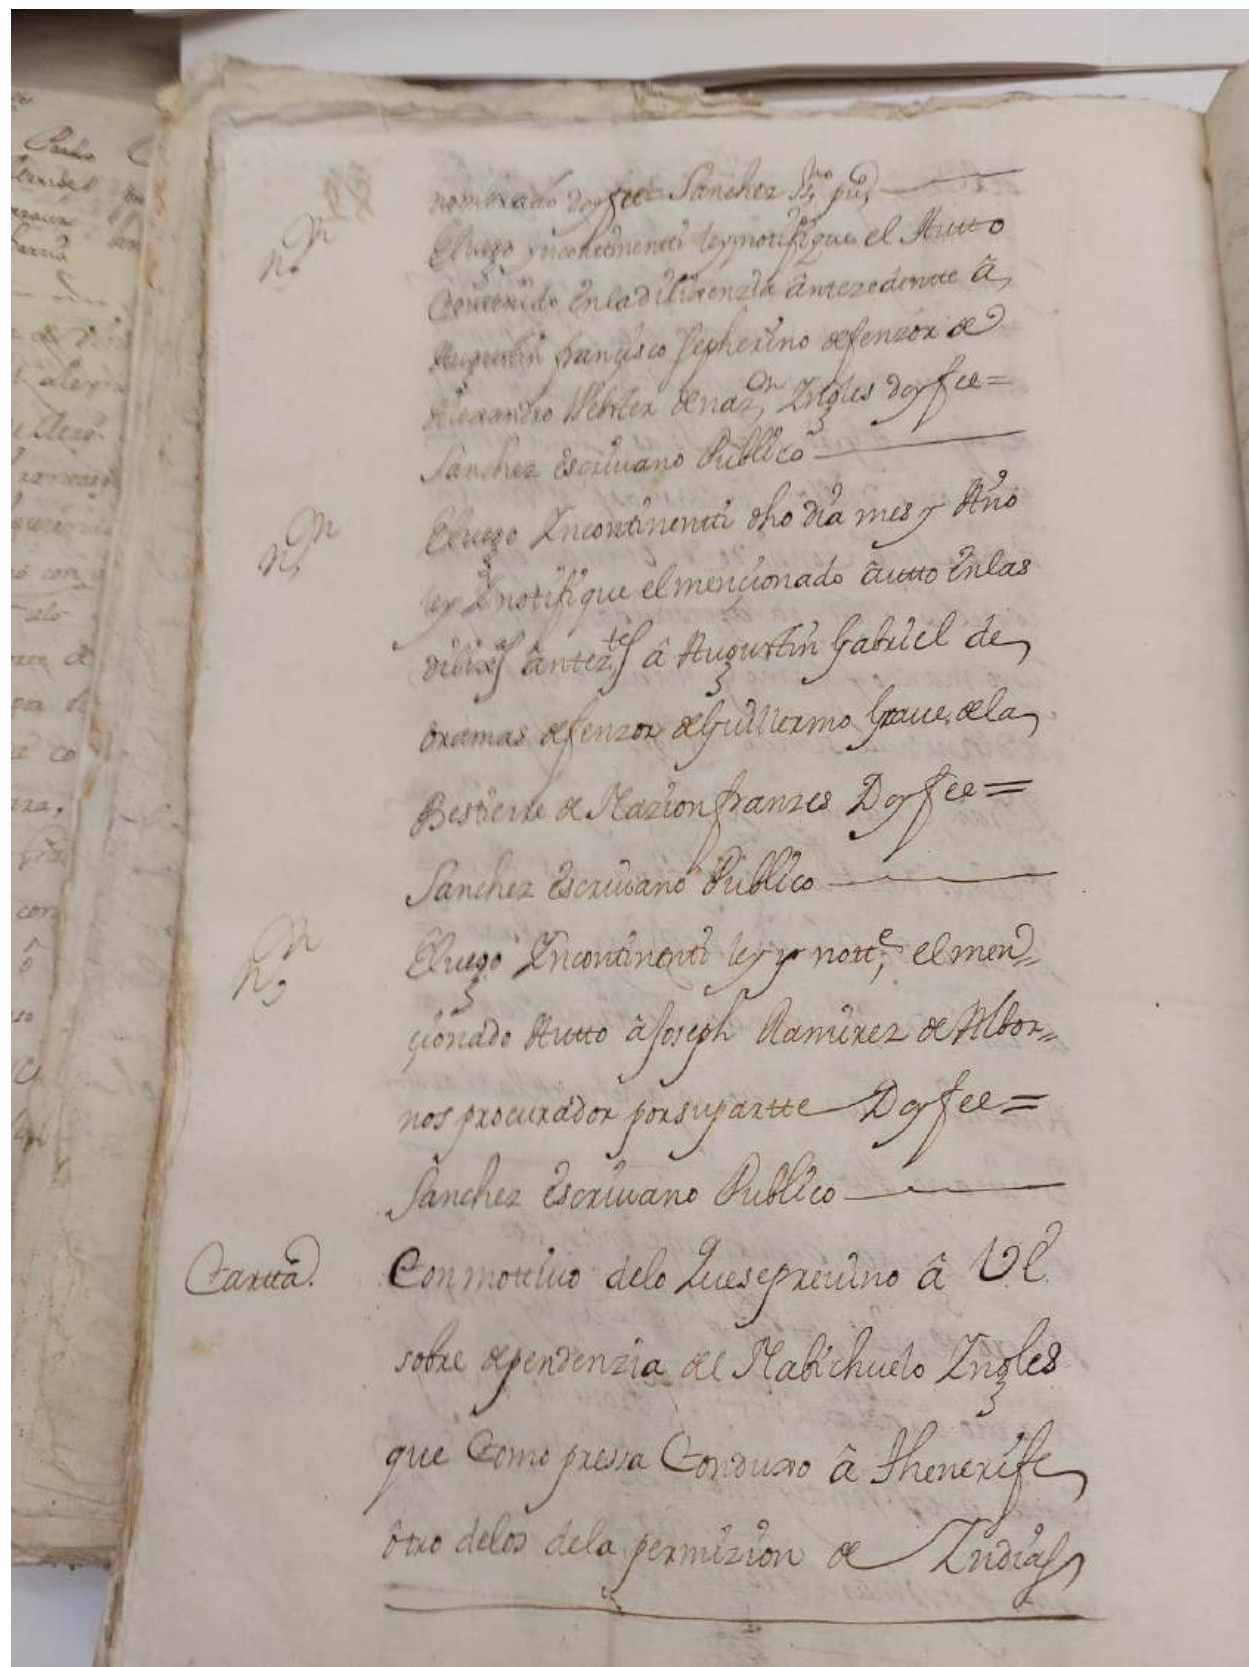 nombrado doy fee = Sanchez Ss.no pu.co
n.on
E luego yncontinenti ley y notifique el Autto
Contenido en la dilixenzia antezedente â
Augustin françisco Sepherino defenzor de
Alexandro Webster de naz.on Ingles doy fee =
Sanchez escriuano Publico
n.on
E luego Incontinenti dho dia mes y Año
ley y notifique el mençionado autto en las
dilixs antez.tes â Augustin Gabriel de
oramas defenzor de Guillermo Graue de la
Bestierre de Nazion franzes Doy fee =
Sanchez escriuano Publico
n.on
E luego Incontinenti ley y nott.e el men=
çionado Autto â Joseph Ramirez de Albor=
nos procurador por su partte Doy fee =
Sanchez escriuano Publico
Cartta.
Con mottiuo de lo Que se preuino â Vs.
sobre dependenzia de Nabichuelo Ingles
que Como pressa Conduxo â thenerife
otro de los de la permizion de Indias